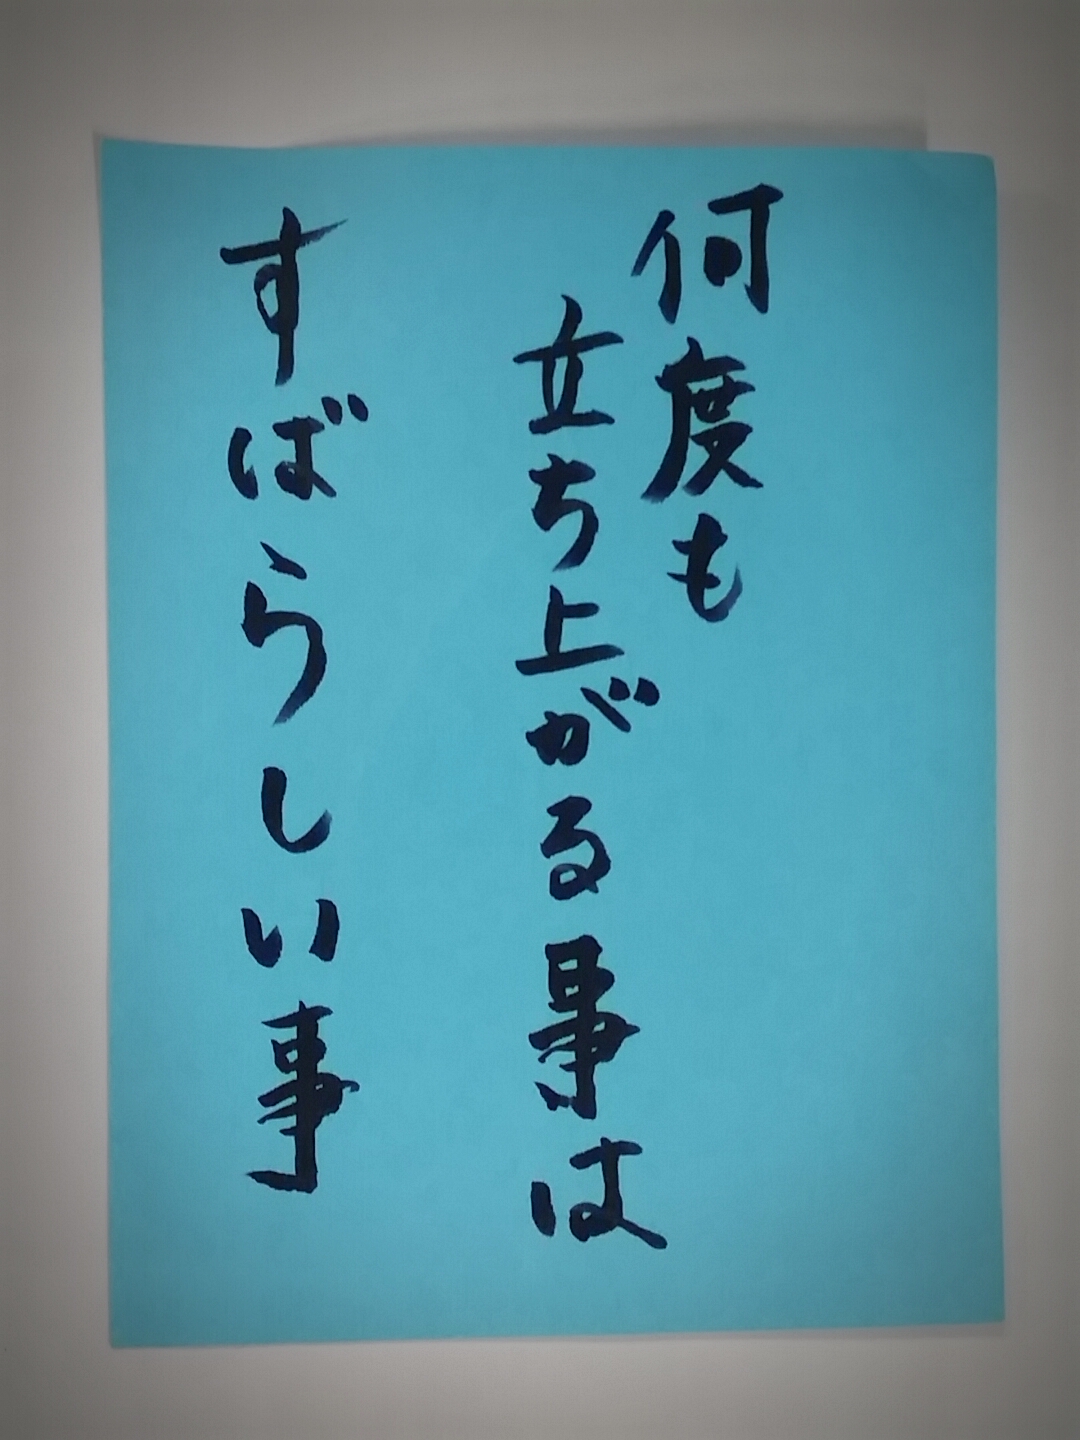 何度も
立ち上がる事は
すばらしい事